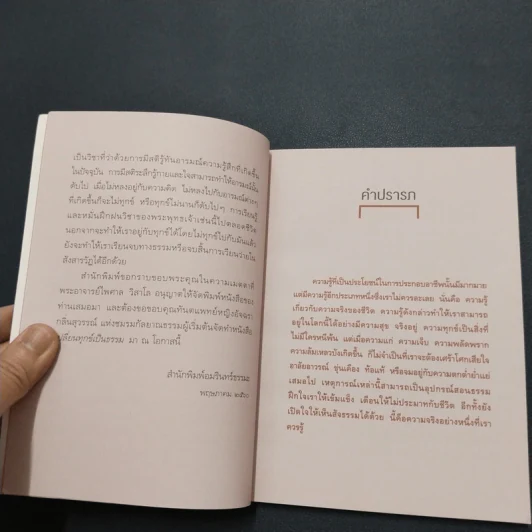 เป็นวิชาที่ว่าด้วยการมีสติรู้ทันอารมณ์ความรู้สึกที่เกิดขึ้น
ในปัจจุบัน การมีสติระลึกรู้กายและใจสามารถทำให้อารมณ์นั้น
ดับไป เมื่อไม่หลงอยู่กับความคิด ไม่หลงไปกับอารมณ์ต่างๆ
ที่เกิดขึ้นก็จะไม่ทุกข์ หรือทุกข์ไม่นานก็ดับไปๆ การเรียนรู้
และหมั่นฝึกฝนวิชาของพระพุทธเจ้าเช่นนี้ไปตลอดชีวิต
นอกจากจะทำให้เราอยู่กับทุกข์ได้โดยไม่ทุกข์ไปกับมันแล้ว
ยังจะทำให้เราเรียนจบทางธรรมหรือจบสิ้นการเวียนว่ายใน
สังสารวัฏได้อีกด้วย
สำนักพิมพ์ขอกราบขอบพระคุณในความเมตตาที่
พระอาจารย์ไพศาล วิสาโล อนุญาตให้จัดพิมพ์หนังสือของ
ท่านเสมอมา และต้องขอขอบคุณทันตแพทย์หญิงอัจฉรา
กลิ่นสุวรรณ์ แห่งชมรมกัลยาณธรรมผู้เริ่มต้นจัดทำหนังสือ
เปลี่ยนทุกข์เป็นธรรม มา ณ โอกาสนี้
สำนักพิมพ์อมรินทร์ธรรมะ
พฤษภาคม ๒๕๖๐
คำปรารภ
ความรู้ที่เป็นประโยชน์ในการประกอบอาชีพนั้นมีมากมาย
แต่มีความรู้อีกประเภทหนึ่งซึ่งเราไม่ควรละเลย นั่นคือ ความรู้
เกี่ยวกับความจริงของชีวิต ความรู้ดังกล่าวทำให้เราสามารถ
อยู่ในโลกนี้ได้อย่างมีความสุข จริงอยู่ ความทุกข์เป็นสิ่งที่
ไม่มีใครหนีพ้น แต่เมื่อความแก่ ความเจ็บ ความพลัดพราก
ความล้มเหลวบังเกิดขึ้น ก็ไม่จำเป็นที่เราจะต้องเศร้าโศกเสียใจ
อาลัยอาวรณ์ ขุ่นเคือง ท้อแท้ หรือจมอยู่กับความตกต่ำย่ำแย่
เสมอไป เหตุการณ์เหล่านี้สามารถเป็นอุปกรณ์สอนธรรม
ฝึกใจเราให้เข้มแข็ง เตือนให้ไม่ประมาทกับชีวิต อีกทั้งยัง
เปิดใจให้เห็นสัจธรรมได้ด้วย นี้คือความจริงอย่างหนึ่งที่เรา
ควรรู้